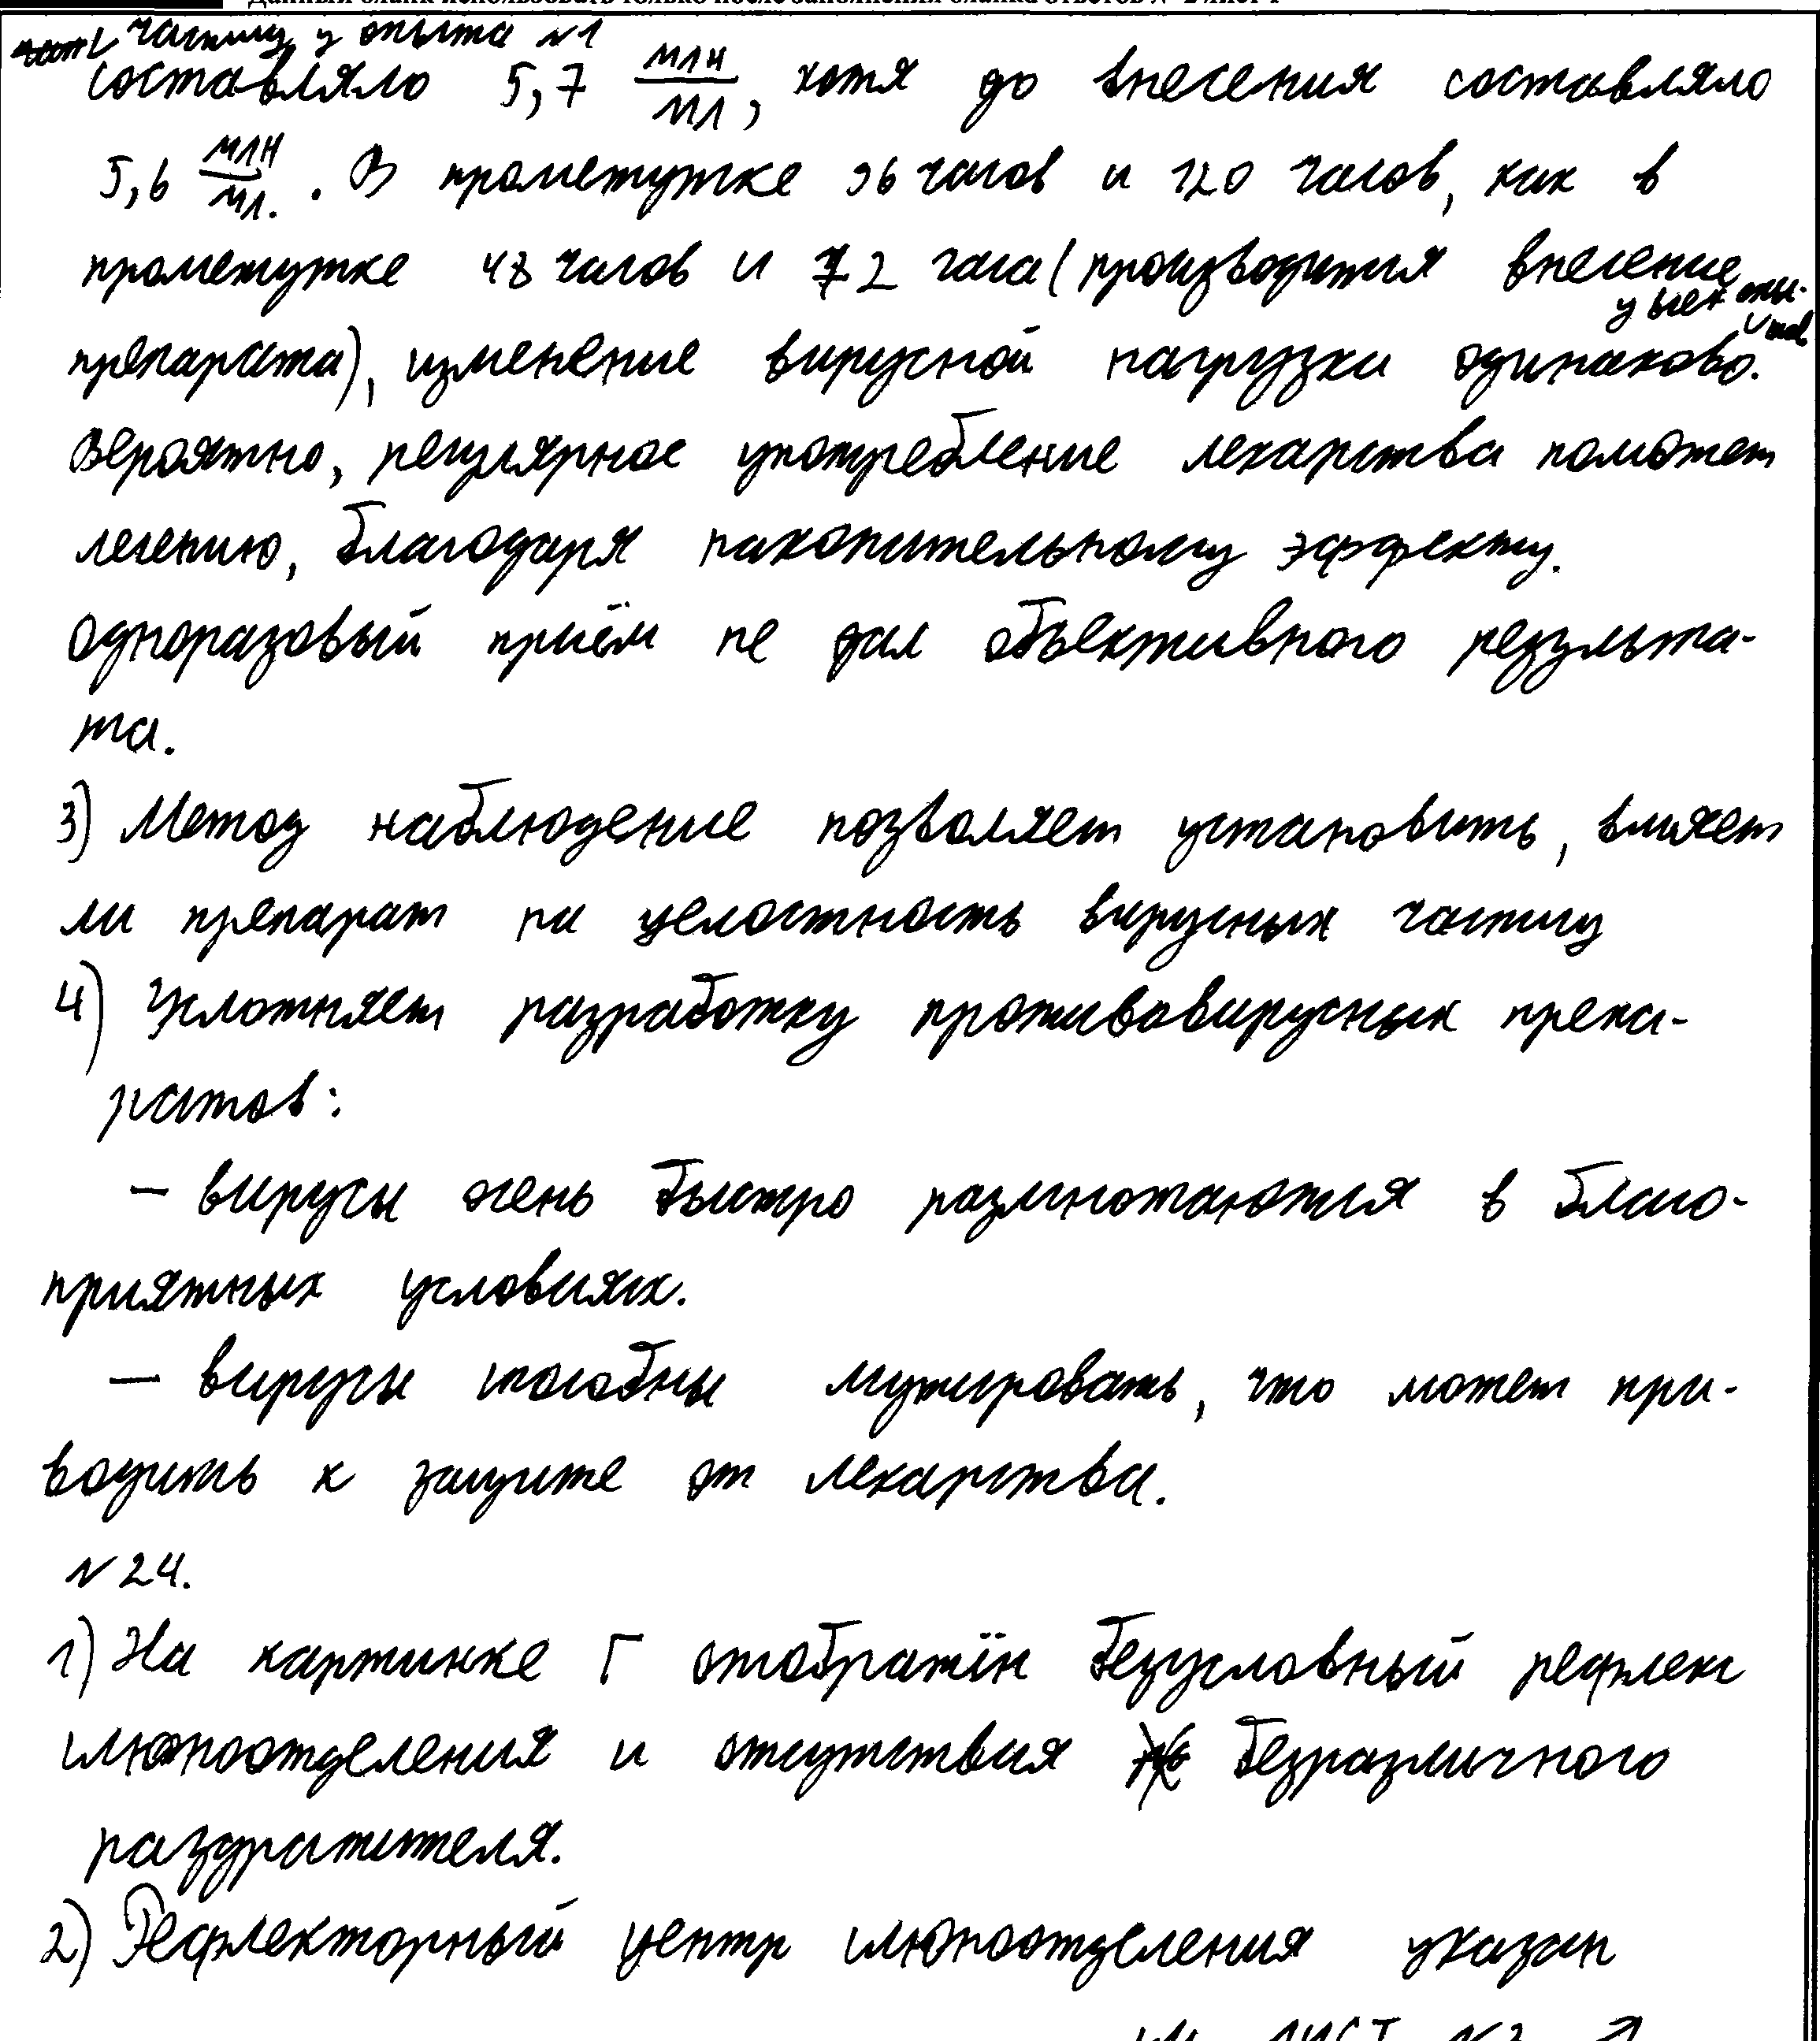 Данный бланк использовать только после заполнения бланка ответов № 2 лист 1
частиц у опыта №1
составляло 5,7 млн/мл, хотя до внесения составляло
5,6 млн/мл. В промежутке 96 часов и 120 часов, как в
промежутке 48 часов и 72 часа (производится внесение
у всех опы-
тов
препарата), изменение вирусной нагрузки одинаково.
Вероятно, регулярное употребление лекарства поможет
лечению, благодаря накопительному эффекту.
Одноразовый приём не дал объективного результа-
та.
3) Метод наблюдение позволяет установить, влияет
ли препарат на целостность вирусных частиц
4) Усложняет разработку противовирусных препа-
ратов:
— вирусы очень быстро размножаются в благо-
приятных условиях.
— вирусы способны мутировать, что может при-
водить к защите от лекарства.
№24.
1) На картинке Г отображён безусловный рефлекс
слюноотделения и отсутствия безразличного
раздражителя.
2) Рефлекторный центр слюноотделения указан
см. ЛИСТ №3 ↗